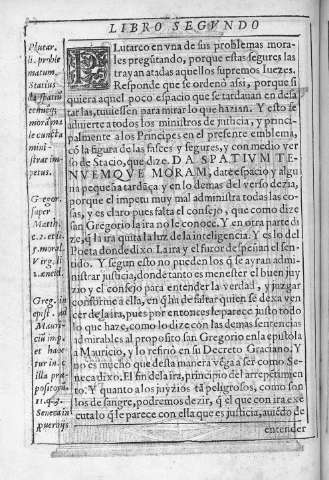 LIBRO SEGVNDO
Plutar.
li. proble
matum.
Statius
da spatiũ
tenuẽq;
morã, ma
le cuncta
mini-
strat im-
petus.
Gregor.
super
Matth.
c. 2. et li.
r. moral.
Virg. li.
2. aeneid.
Greg. in
epist. ad
Mauri-
ciũ imp.
et habe
tur in c.
illa præ
positorũ.
11. q. 3.
Seneca in
prouerbijs
PLutarco en vna de sus problemas mora-
les pregũtando, porque estas segures las
trayan atadas aquellos supremos Iuezes.
Responde que se ordenò assi, porque si
quiera aquel poco espacio que se tardauan en desa
tarlas, tuuiessen para mirar lo que haziãn. Y esto se
aduierte a todos los ministros de justicia, y princi-
palmente a los Principes en el presente emblema,
cõ la figura de las fasces y segures, y con medio ver
so de Stacio, que dize. DA SPATIVM TE-
NVEMQVE MORAM, date espacio y algu
na pequeña tardãça y en lo demas del verso dezia,
porque el impetu muy mal administra todas las co
sas, y es claro pues falta el consejo, que como dize
san Gregorio la ira no le conoce. Y en otra parte di
ze, q̃ la ira quita la luz de la inteligencia. Y es lo del
Poeta donde dixo. La ira y el furor despeñan el sen-
tido. Y segun esto no pueden los q̃ se ayran admini-
strar justicia, donde tanto es menester el buen juy
zio y el consejo para entender la verdad, y juzgar
conforme a ella, en q̃ hã de faltar quien se dexa ven
cer de la ira, pues por entonces le parece justo todo
lo que haze, como lo dize cõn las demas sentencias
admirables al proposito san Gregorio en la epistola
a Mauricio, y lo refiriò en su Decreto Graciano. Y
no es mucho que desta manera vẽga a ser como. Se-
neca dixo. El fin de la ira, principio del arrepẽtimien
to. Y quanto a los juyzios tã peligrosos, como son
los de sangre, podremos dezir, q̃ el que con ira exe
cuta lo q̃ le parece con ella que es justicia, auiẽdo de
entender